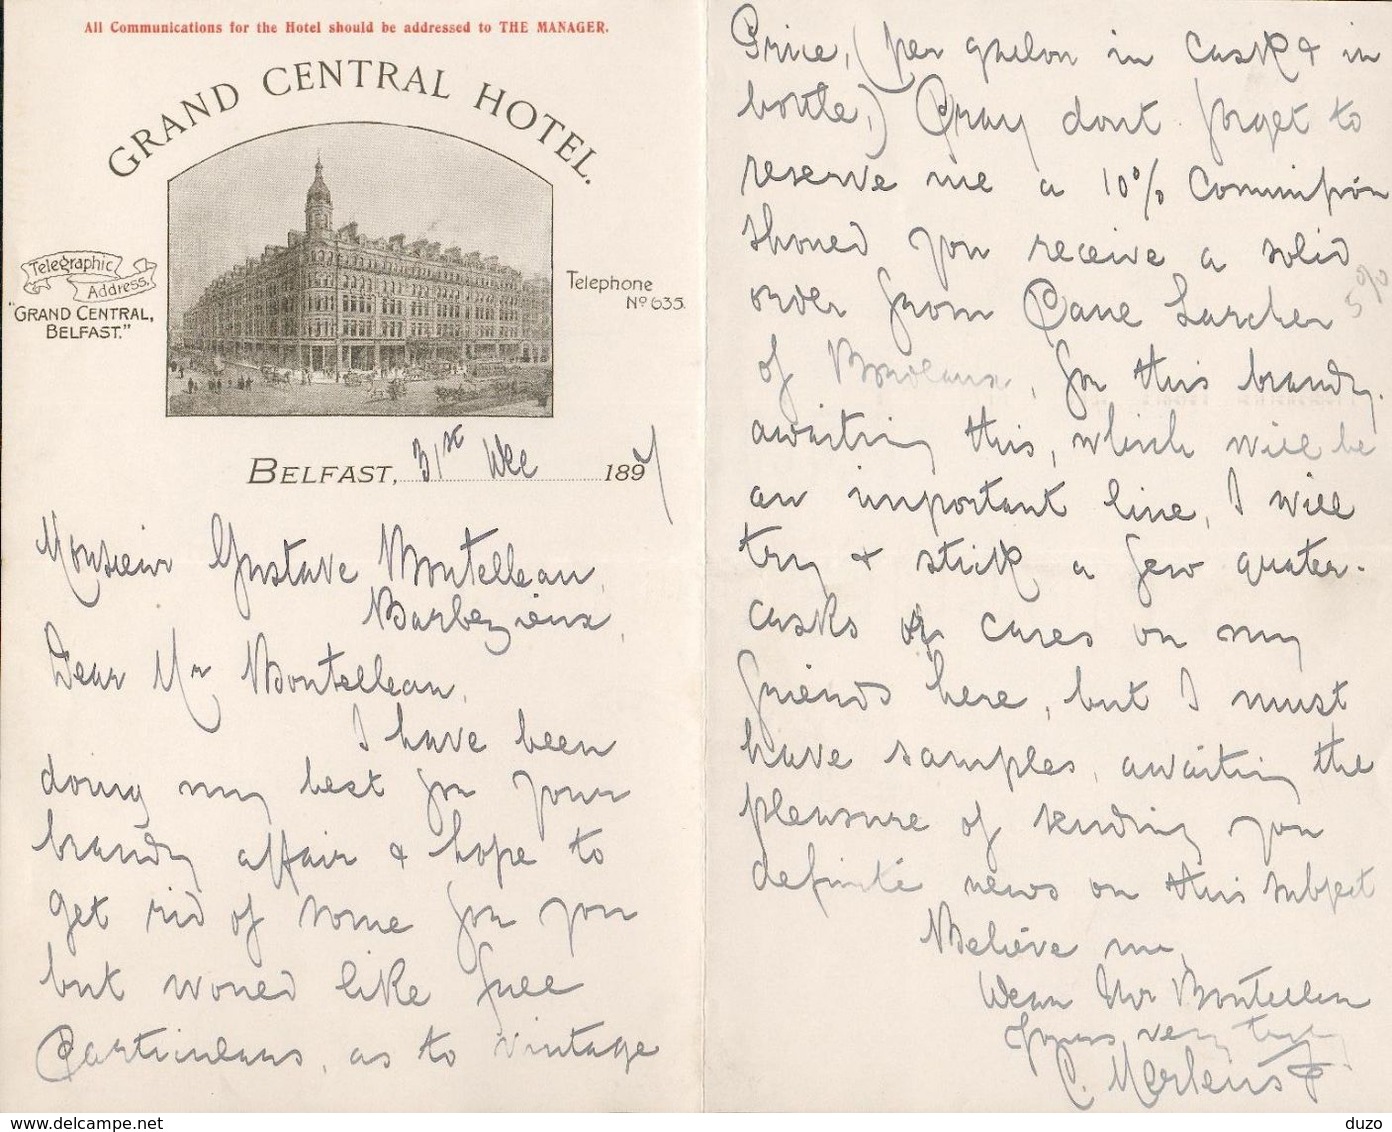 All Communications for the Hotel should be addressed to THE MANAGER.
GRAND CENTRAL HOTEL.
Telegraphic
Address.
"GRAND CENTRAL,
BELFAST."
Telephone
No 635.
BELFAST, 31st Dec 1897
Monsieur Gustave Montelleau,
Barbezieux,
Dear Mr Montelleau,
I have been
doing my best for your
brandy affair & hope to
get rid of some for you
but would like full
Particulars, as to vintage
Price, (per gallon in cask & in
bottle,) Pray dont forget to
reserve me a 10% Commission
should you receive a solid
order from Larcher
5%
of Bordeaux, for this brandy.
awaiting this, which will be
an important line, I will
try & stick a few quater-
casks or cases on my
friends here, but I must
have samples, awaiting the
pleasure of sending you
definite news on this subject
Believe me,
Dear Mr Montelleau
Yours very truly
C. Mertens
duzo
www.delcampe.net